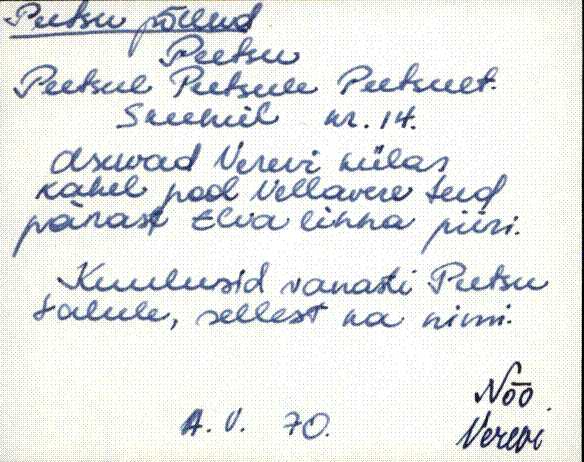 Peetsu põllud
Peetsu
Peetsul Peetsule Peetsult.
nr. 14.
Asuvad Verevi külas
kahel pool Vellavere teed
pärast Elva linna piiri.
Kuulusid vanasti Peetsu
talule, sellest ka nimi.
A. V. 70.
Nõo
Verevi